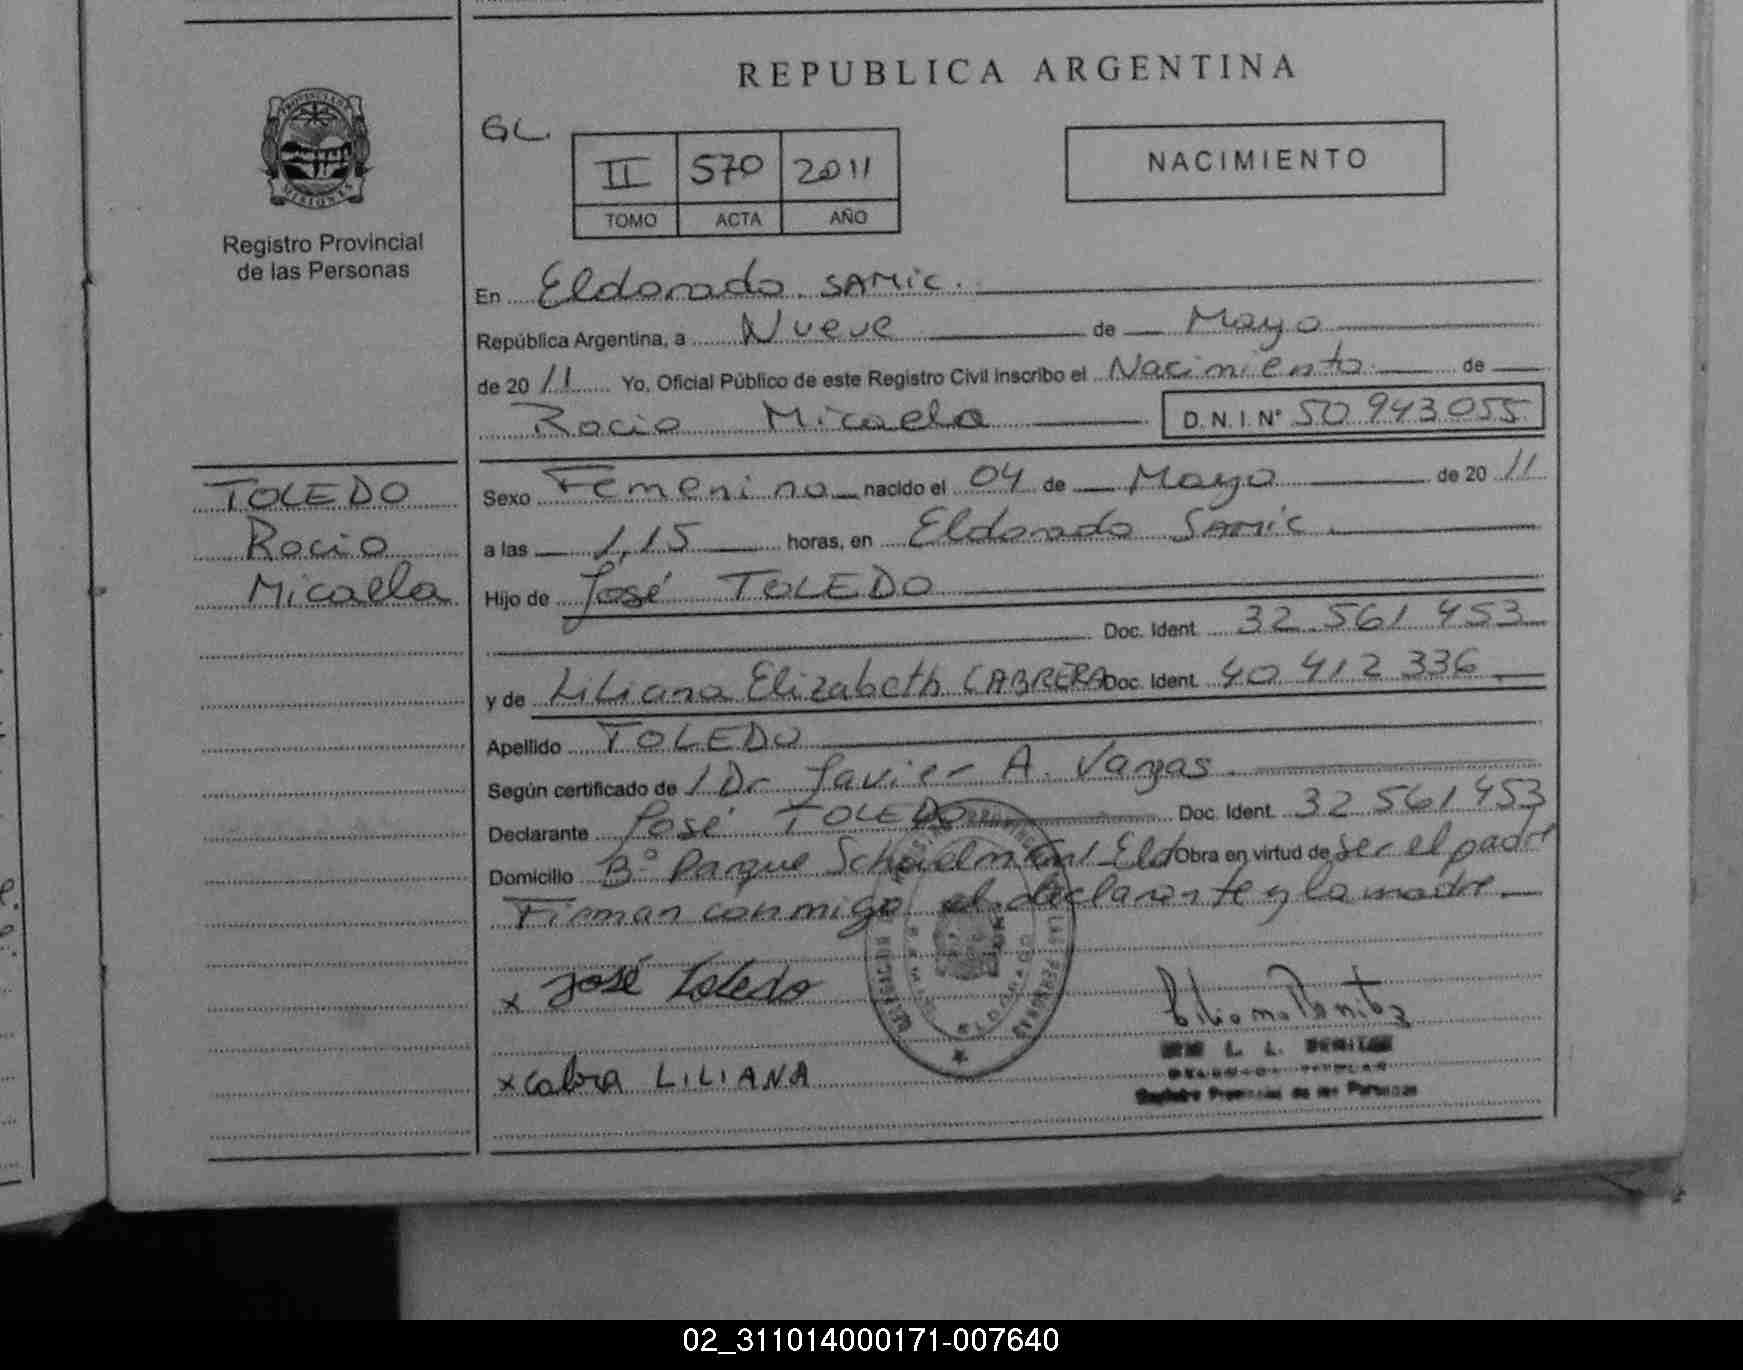 REPUBLICA ARGENTINA
GL.
II 570 2011
TOMO ACTA AÑO
NACIMIENTO
PROVINCIA DE MISIONES
Registro Provincial
de las Personas
En Eldorado SAMIC.
República Argentina, a Nueve de Mayo
de 20 11 Yo, Oficial Público de este Registro Civil inscribo el Nacimiento de
Rocio Micaela D.N.I. Nº 50 943.055
TOLEDO
Rocio
Micaela
Sexo Femenino nacido el 04 de Mayo de 20 11
a las 1,15 horas, en Eldorado SAMIC
Hijo de José TOLEDO
Doc. Ident. 32 561 453
y de Liliana Elizabeth CABRERA Doc. Ident. 40 412 336
Apellido TOLEDO
Según certificado de l Dr Javier A. Vargas.
Declarante José TOLEDO Doc. Ident. 32 561 453
Domicilio Bº Parque Schwelm Eldo Obra en virtud de ser el padre
Firman conmigo el declarante y la madre
x José Toledo
x Cabra LILIANA
L. L.
Registro Provincial de las Personas
02_311014000171-007640